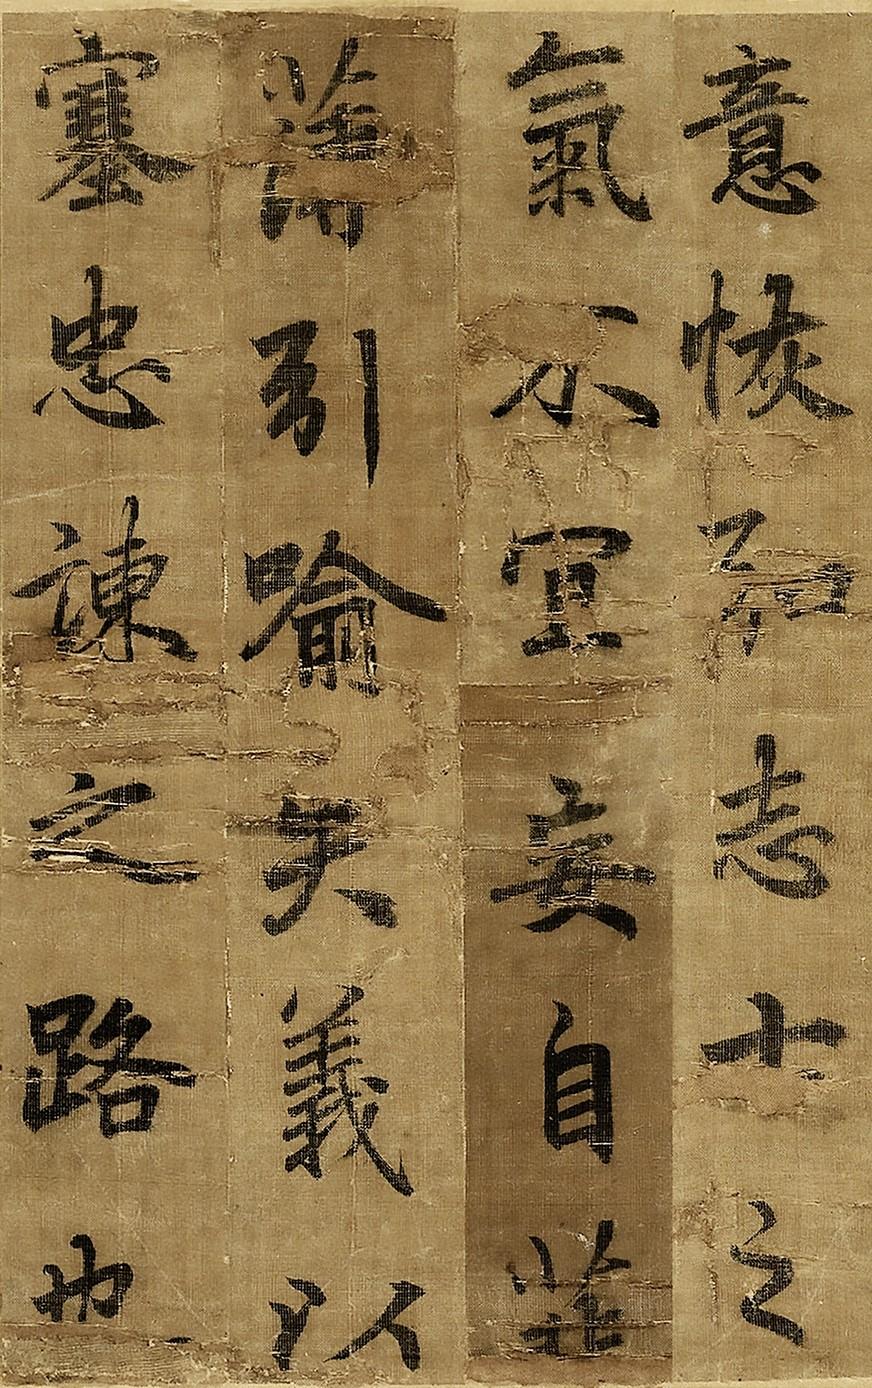 意恢弘志士之
氣不宜妄自菲
薄引喻失義以
塞忠諫之路也